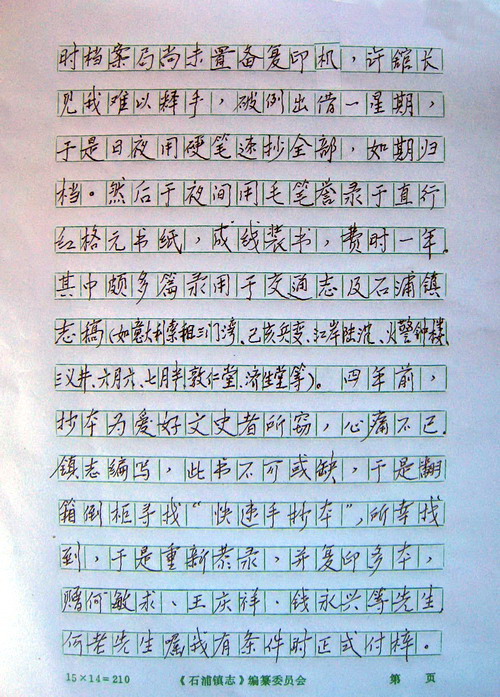 时档案局尚未置备复印机，许馆长
见我难以释手，破例出借一星期，
于是日夜用硬笔速抄全部，如期归
档。然后于夜间用毛笔誊录于直行
红格元书纸，成线装书，费时一年.
其中颇多篇录用于交通志及石浦镇
志稿(如意大利索租三门湾、己亥兵变、江岸陆沉、火警钟楼、
三义井、六月六、七月半、敦仁堂、济生堂等)。四年前，
抄本为爱好文史者所窃，心痛不已.
镇志编写，此书不可或缺，于是翻
箱倒柜寻找“快速手抄本”，所幸找
到，于是重新恭录，并复印多本，
赠何敏求、王庆祥、钱永兴等先生.
何老先生嘱我有条件时正式付梓。
15×14=210 《石浦镇志》编纂委员会 第 页